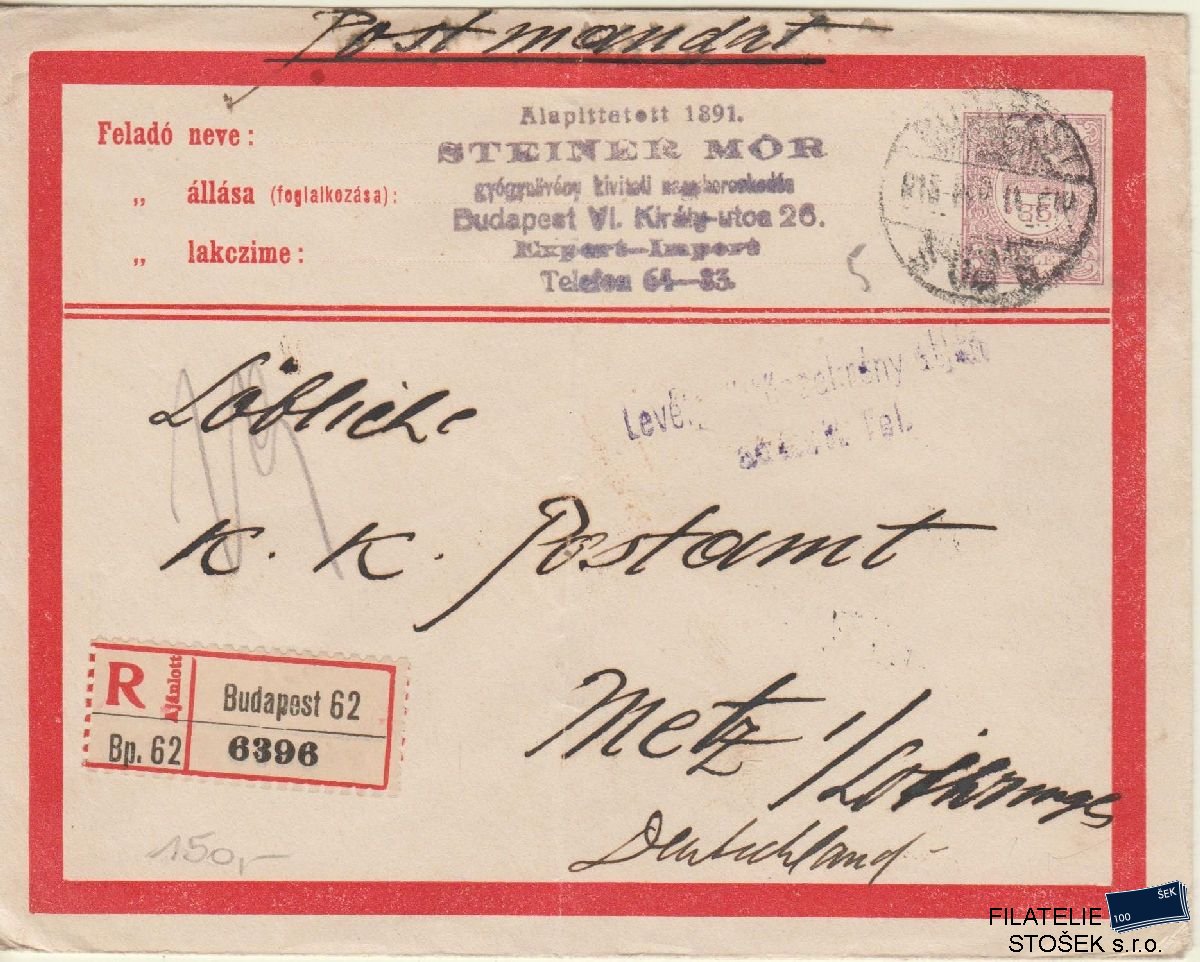 Postmandat
Feladó neve:
„ állása (foglalkozása):
„ lakczime:
Alapittatott 1891.
STEINER MÓR
gyógynövény kiviteli nagykereskedés
Budapest VI. Király-utca 26.
Export-Import
Telefon 64—83.
5
Löbliche
K. K. Postamt
Metz / Lothringen
Deutschland
R
Ajánlott
Budapest 62
Bp. 62
6396
150,-
FILATELIE
STOŠEK s.r.o.
100
ŠEK